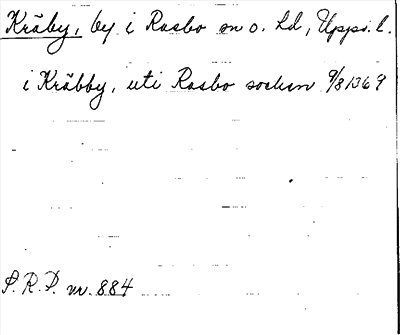 Kråby, by i Rasbo sn o. hd, Upps. l.
i Kråbby, uti Rasbo socken 9/8 1369
S.R.P. nr. 884